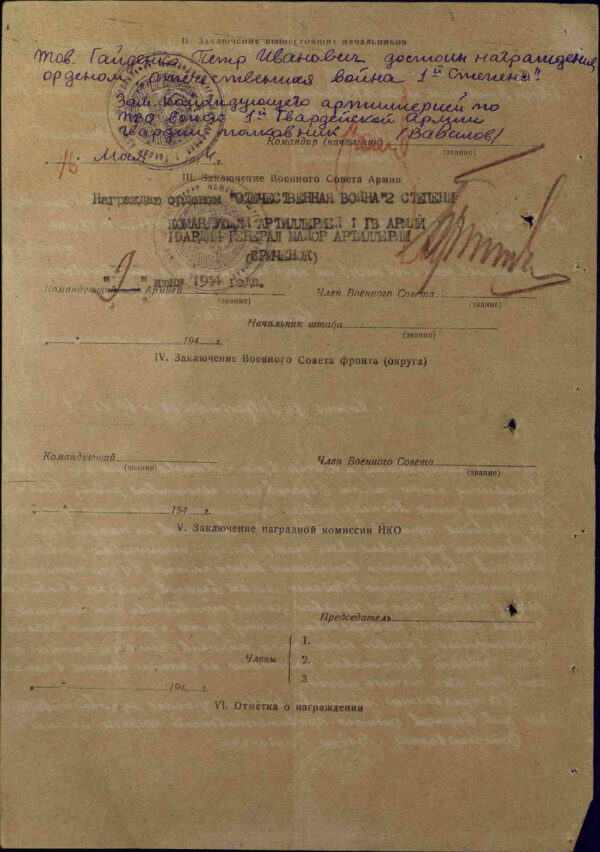 II. Заключение вышестоящих начальников
тов. Гайденко Петр Иванович достоин награждения
орденом "Отечественная война" 1й степени".
Зам. Командующего артиллерией по
1й Гвардейской Армии
гвардии полковник (Вавилов)
Командир (начальник)
(звание)
мая
III. Заключение Военного Совета Армии
Награждаю орденом "ОТЕЧЕСТВЕННАЯ ВОЙНА" 2 СТЕПЕНИ
АРТИЛЛЕРИЕЙ 1 ГВ АРМИИ
ГВАРДИИ ГЕНЕРАЛ МАЙОР АРТИЛЛЕРИИ
(БРИЧЕНОК)
"2" июня 1944 года.
Командующий Армией Член Военного Совета
(звание) (звание)
Начальник штаба
(звание)
" " 194 г.
IV. Заключение Военного Совета фронта (округа)
Командующий Член Военного Совета
(звание) (звание)
" " 194 г.
V. Заключение наградной комиссии НКО
Председатель
1.
Члены 2.
3
" " 194 г.
VI. Отметка о награждении